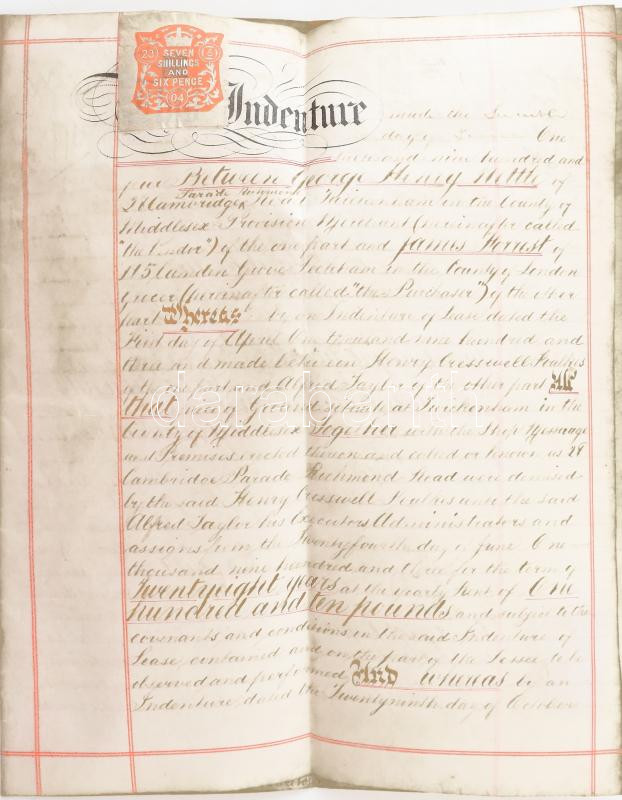 23 4
SEVEN
SHILLINGS
AND
SIX PENCE
04
Indenture made the
day of One
thousand nine hundred and
four Between George Henry Nettle of
Parade Richmond
28 Cambridge Road Twickenham in the County of
Middlesex Provision Merchant (hereinafter called
"the Vendor") of the one part and James Forrest of
115 Linden Grove Peckham in the County of London
Grocer (hereinafter called "the Purchaser") of the other
part Whereas by an Indenture of Lease dated the
First day of April One thousand nine hundred and
three and made between Henry Cresswell Foulkes
of the one part and Alfred Taylor of the other part All
that piece of Ground situate at Twickenham in the
County of Middlesex Together with the Shop Messuage
and Premises erected thereon and called or known as 28
Cambridge Parade Richmond Road were demised
by the said Henry Cresswell Foulkes unto the said
Alfred Taylor his Executors Administrators and
assigns from the Twentyfourth day of June One
thousand nine hundred and three for the term of
Twentyeight years at the yearly Rent of One
hundred and ten pounds and subject to the
covenants and conditions in the said Indenture of
Lease contained and on the part of the Lessee to be
observed and performed And whereas by an
Indenture dated the Twentyninth day of October
darabanth